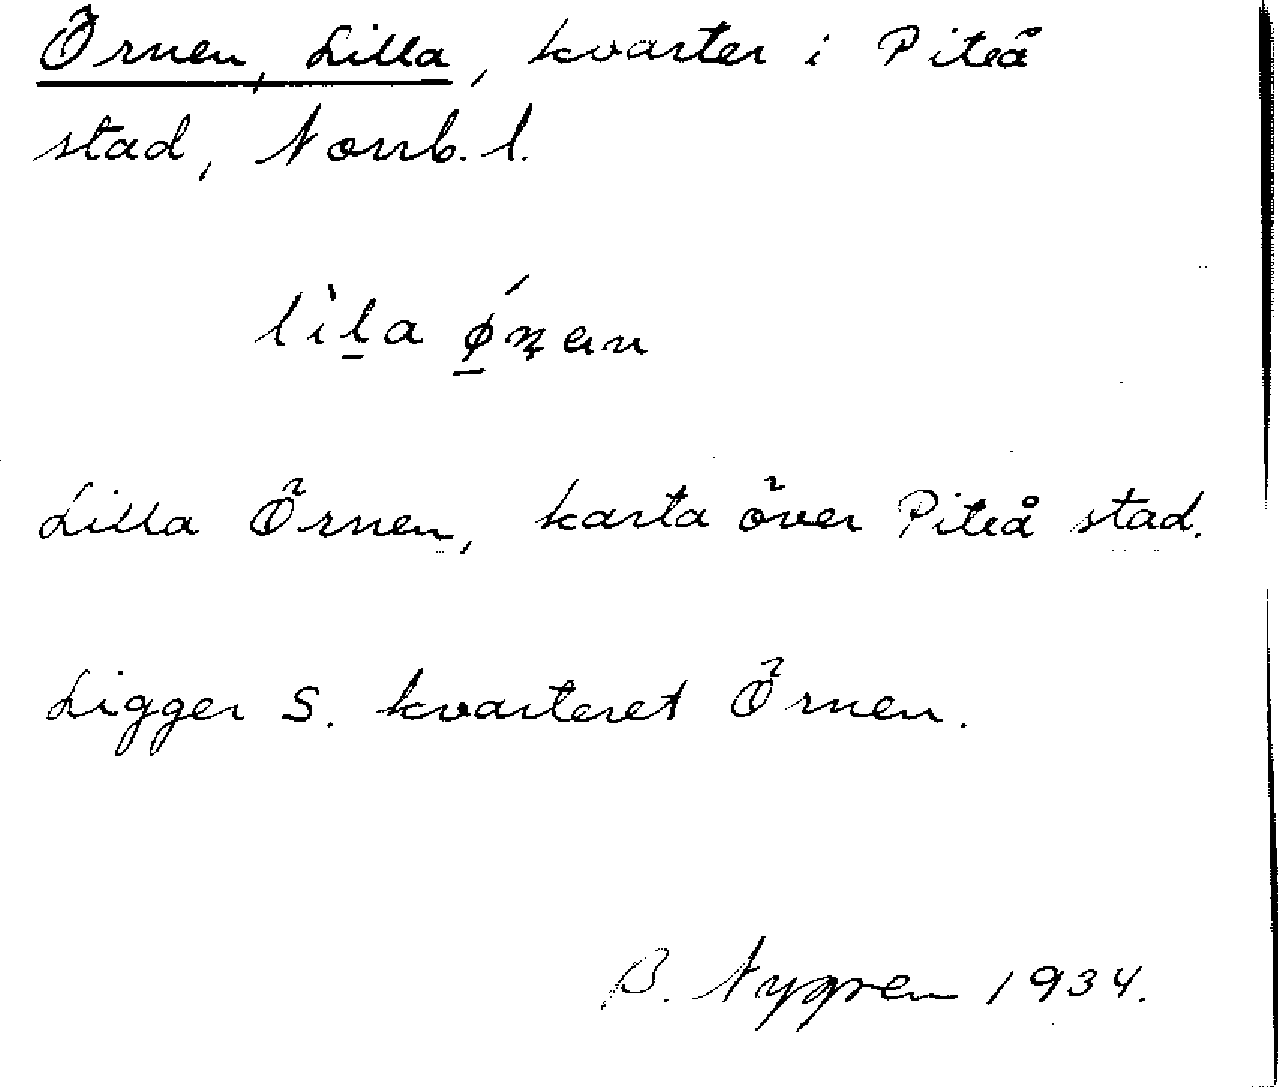 Örnen, Lilla, kvarter i Piteå
stad, Norrb. l.
lìl̠a ǿ̠ɳen
Lilla Örnen, karta över Piteå stad.
Ligger S. kvarteret Örnen.
B. Nygren 1934.